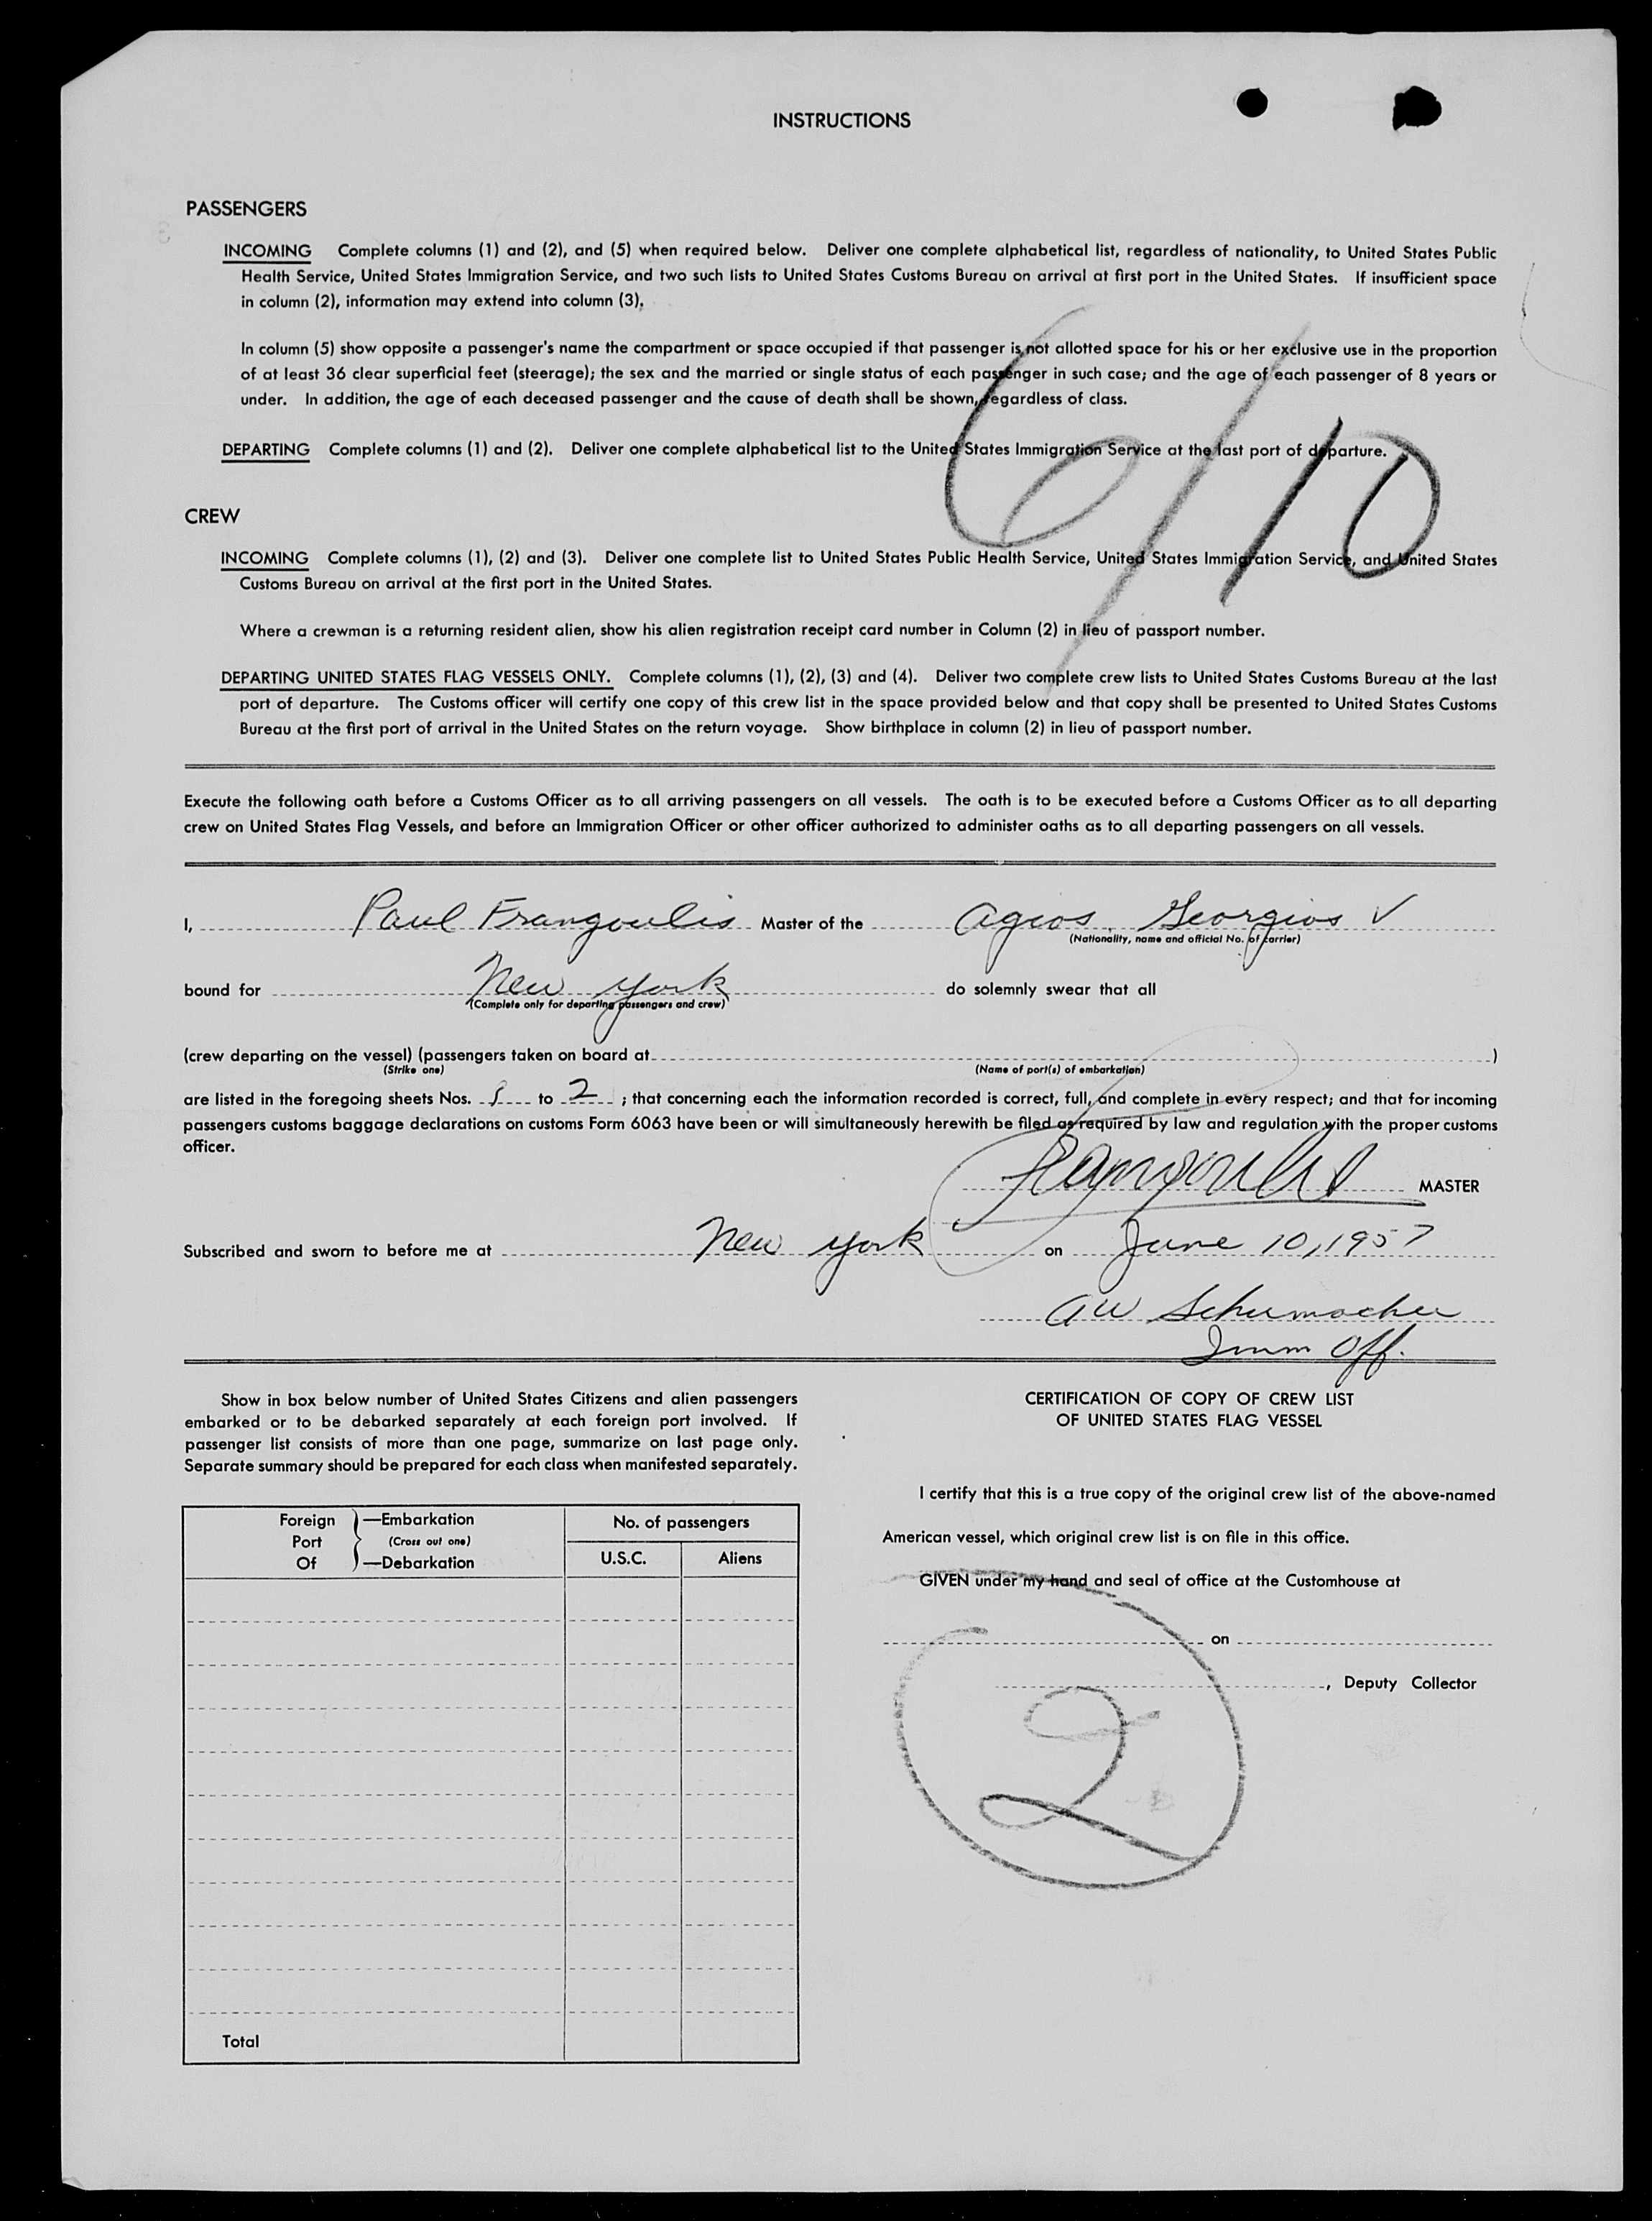 INSTRUCTIONS
PASSENGERS
INCOMING Complete columns (1) and (2), and (5) when required below. Deliver one complete alphabetical list, regardless of nationality, to United States Public
Health Service, United States Immigration Service, and two such lists to United States Customs Bureau on arrival at first port in the United States. If insufficient space
in column (2), information may extend into column (3).
In column (5) show opposite a passenger's name the compartment or space occupied if that passenger is not allotted space for his or her exclusive use in the proportion
of at least 36 clear superficial feet (steerage); the sex and the married or single status of each passenger in such case; and the age of each passenger of 8 years or
under. In addition, the age of each deceased passenger and the cause of death shall be shown, regardless of class.
6/10
DEPARTING Complete columns (1) and (2). Deliver one complete alphabetical list to the United States Immigration Service at the last port of departure.
CREW
INCOMING Complete columns (1), (2) and (3). Deliver one complete list to United States Public Health Service, United States Immigration Service, and United States
Customs Bureau on arrival at the first port in the United States.
Where a crewman is a returning resident alien, show his alien registration receipt card number in Column (2) in lieu of passport number.
DEPARTING UNITED STATES FLAG VESSELS ONLY. Complete columns (1), (2), (3) and (4). Deliver two complete crew lists to United States Customs Bureau at the last
port of departure. The Customs officer will certify one copy of this crew list in the space provided below and that copy shall be presented to United States Customs
Bureau at the first port of arrival in the United States on the return voyage. Show birthplace in column (2) in lieu of passport number.
Execute the following oath before a Customs Officer as to all arriving passengers on all vessels. The oath is to be executed before a Customs Officer as to all departing
crew on United States Flag Vessels, and before an Immigration Officer or other officer authorized to administer oaths as to all departing passengers on all vessels.
I, Paul Frangoulis Master of the Agios Georgios V
(Nationality, name and official No. of carrier)
bound for New York do solemnly swear that all
(Complete only for departing passengers and crew)
(crew departing on the vessel) (passengers taken on board at )
(Strike one) (Name of port(s) of embarkation)
are listed in the foregoing sheets Nos. 1 to 2 ; that concerning each the information recorded is correct, full, and complete in every respect; and that for incoming
passengers customs baggage declarations on customs Form 6063 have been or will simultaneously herewith be filed as required by law and regulation with the proper customs
officer.
Frangoulis MASTER
Subscribed and sworn to before me at New York on June 10, 1957
AW Schumacher
Imm Off.
Show in box below number of United States Citizens and alien passengers
embarked or to be debarked separately at each foreign port involved. If
passenger list consists of more than one page, summarize on last page only.
Separate summary should be prepared for each class when manifested separately.
Foreign Port Of —Embarkation (Cross out one) —Debarkation
No. of passengers
U.S.C. Aliens
Total
CERTIFICATION OF COPY OF CREW LIST
OF UNITED STATES FLAG VESSEL
I certify that this is a true copy of the original crew list of the above-named
American vessel, which original crew list is on file in this office.
GIVEN under my hand and seal of office at the Customhouse at
on
, Deputy Collector
2